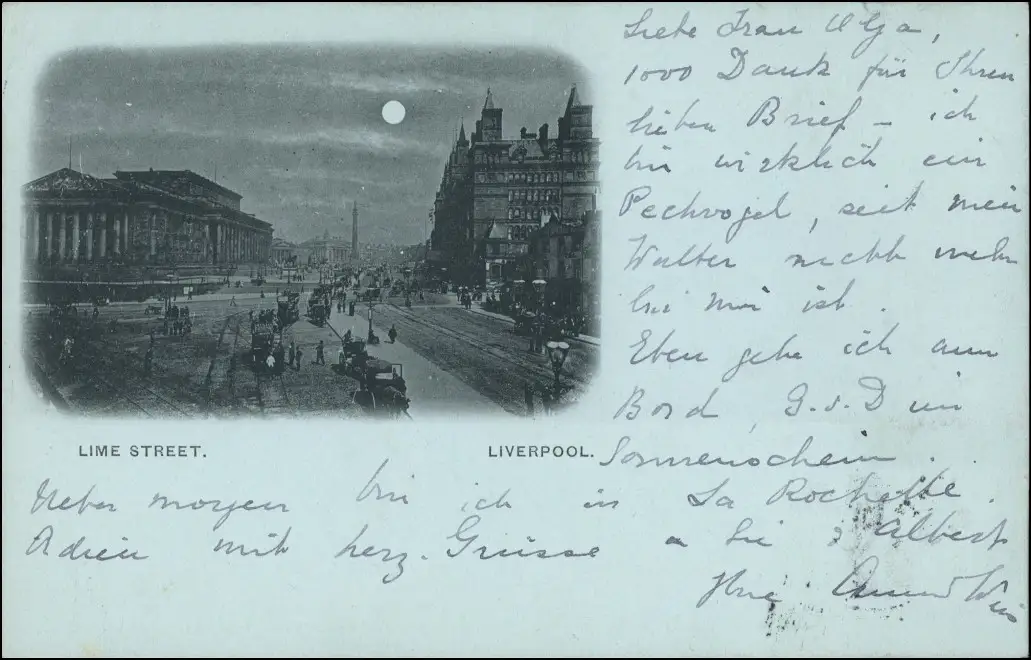 Liebe Frau Olga,
1000 Dank für Ihren
lieben Brief – ich
bin wirklich ein
Pechvogel, seit mein
Walter nicht mehr
bei mir ist.
Eben gehe ich am
Bord, G. s. D im
Sonnenschein.
LIME STREET.
LIVERPOOL.
Ueber morgen bin ich in La Rochelle.
Adieu mit herz. Grüsse a Sie & Albert
Ihre